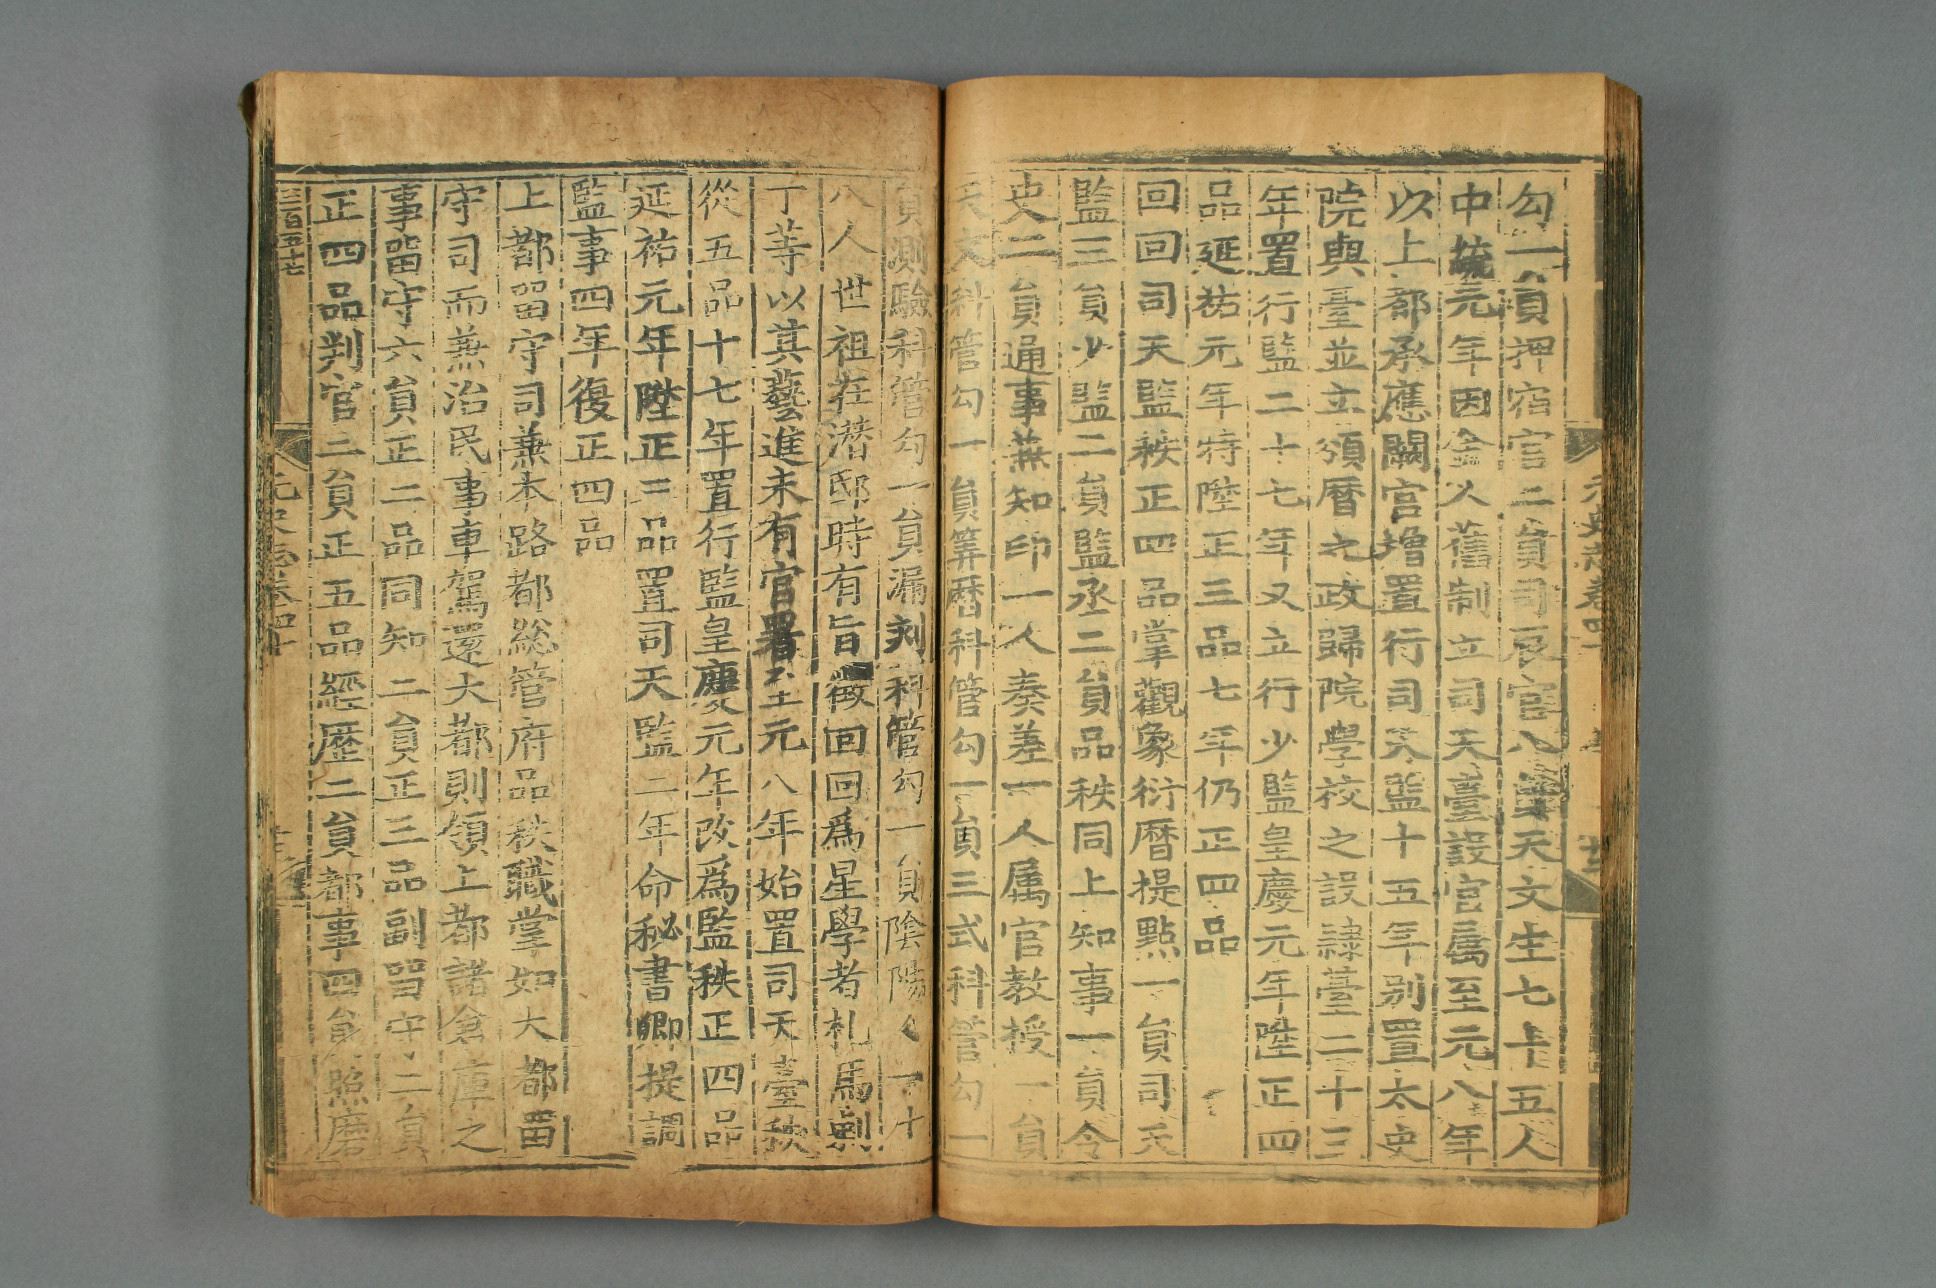 勾一員押宿官二員司辰官八員天文生七十五人
中統元年因金人舊制立司天臺設官属至元八年
以上都承應闕官增置行司天監十五年别置太史
院與臺並立頒曆之政歸院學校之設隷臺二十三
年置行監二十七年又立行少監皇慶元年陞正四
品延祐元年特陞正三品七年仍正四品
回回司天監秩正四品掌觀象衍曆提點一員司天
監三員少監二員監丞二員品秩同上知事一員令
史二員通事兼知印一人奏差一人属官教授一員
天文科管勾一員筭曆科管勾一員三式科管勾一
員測驗科管勾一員漏刻科管勾一員陰陽人一十
八人世祖在潜邸時有旨徵回回爲星學者札馬剌
丁等以其藝進未有官署至元八年始置司天臺秩
從五品十七年置行監皇慶元年改爲監秩正四品
延祐元年陞正三品置司天監二年命秘書卿提調
監事四年復正四品
上都畱守司兼本路都緫管府品秩職掌如大都畱
守司而兼治民事車駕還大都則領上都諸倉庫之
事畱守六員正二品同知二員正三品副畱守二員
正四品判官二員正五品經歷二員都事四員照磨
三百五十七
元史志卷四十